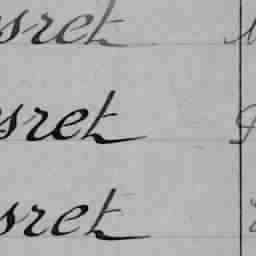 sret
sret
sret